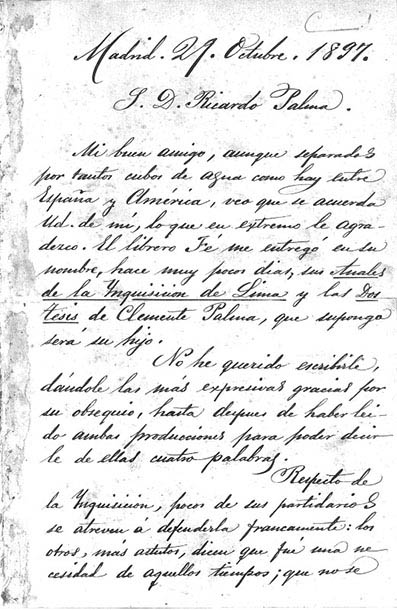 Madrid. 27. Octubre. 1897.
S. D. Ricardo Palma.
Mi buen amigo, aunque separados
por tantos cubos de agua como hay entre
España y América, veo que se acuerda
Ud. de mí, lo que en extremo le agra-
dezco. El librero Fe me entregó en su
nombre, hace muy pocos dias, sus Anales
de la Ynquisicion de Lima y las Dos
tesis de Clemente Palma, que supongo
será su hijo.
No he querido escribirle,
dándole las mas expresivas gracias por
su obsequio, hasta depues de haber lei-
do ambas producciones para poder decir
le de ellas cuatro palabras.
Respecto de
la Ynquisición, pocos de sus partidarios
se atreven á defenderla francamente: los
otros, mas astutos, dicen que fué una ne
cesidad de aquellos tiempos; que no se